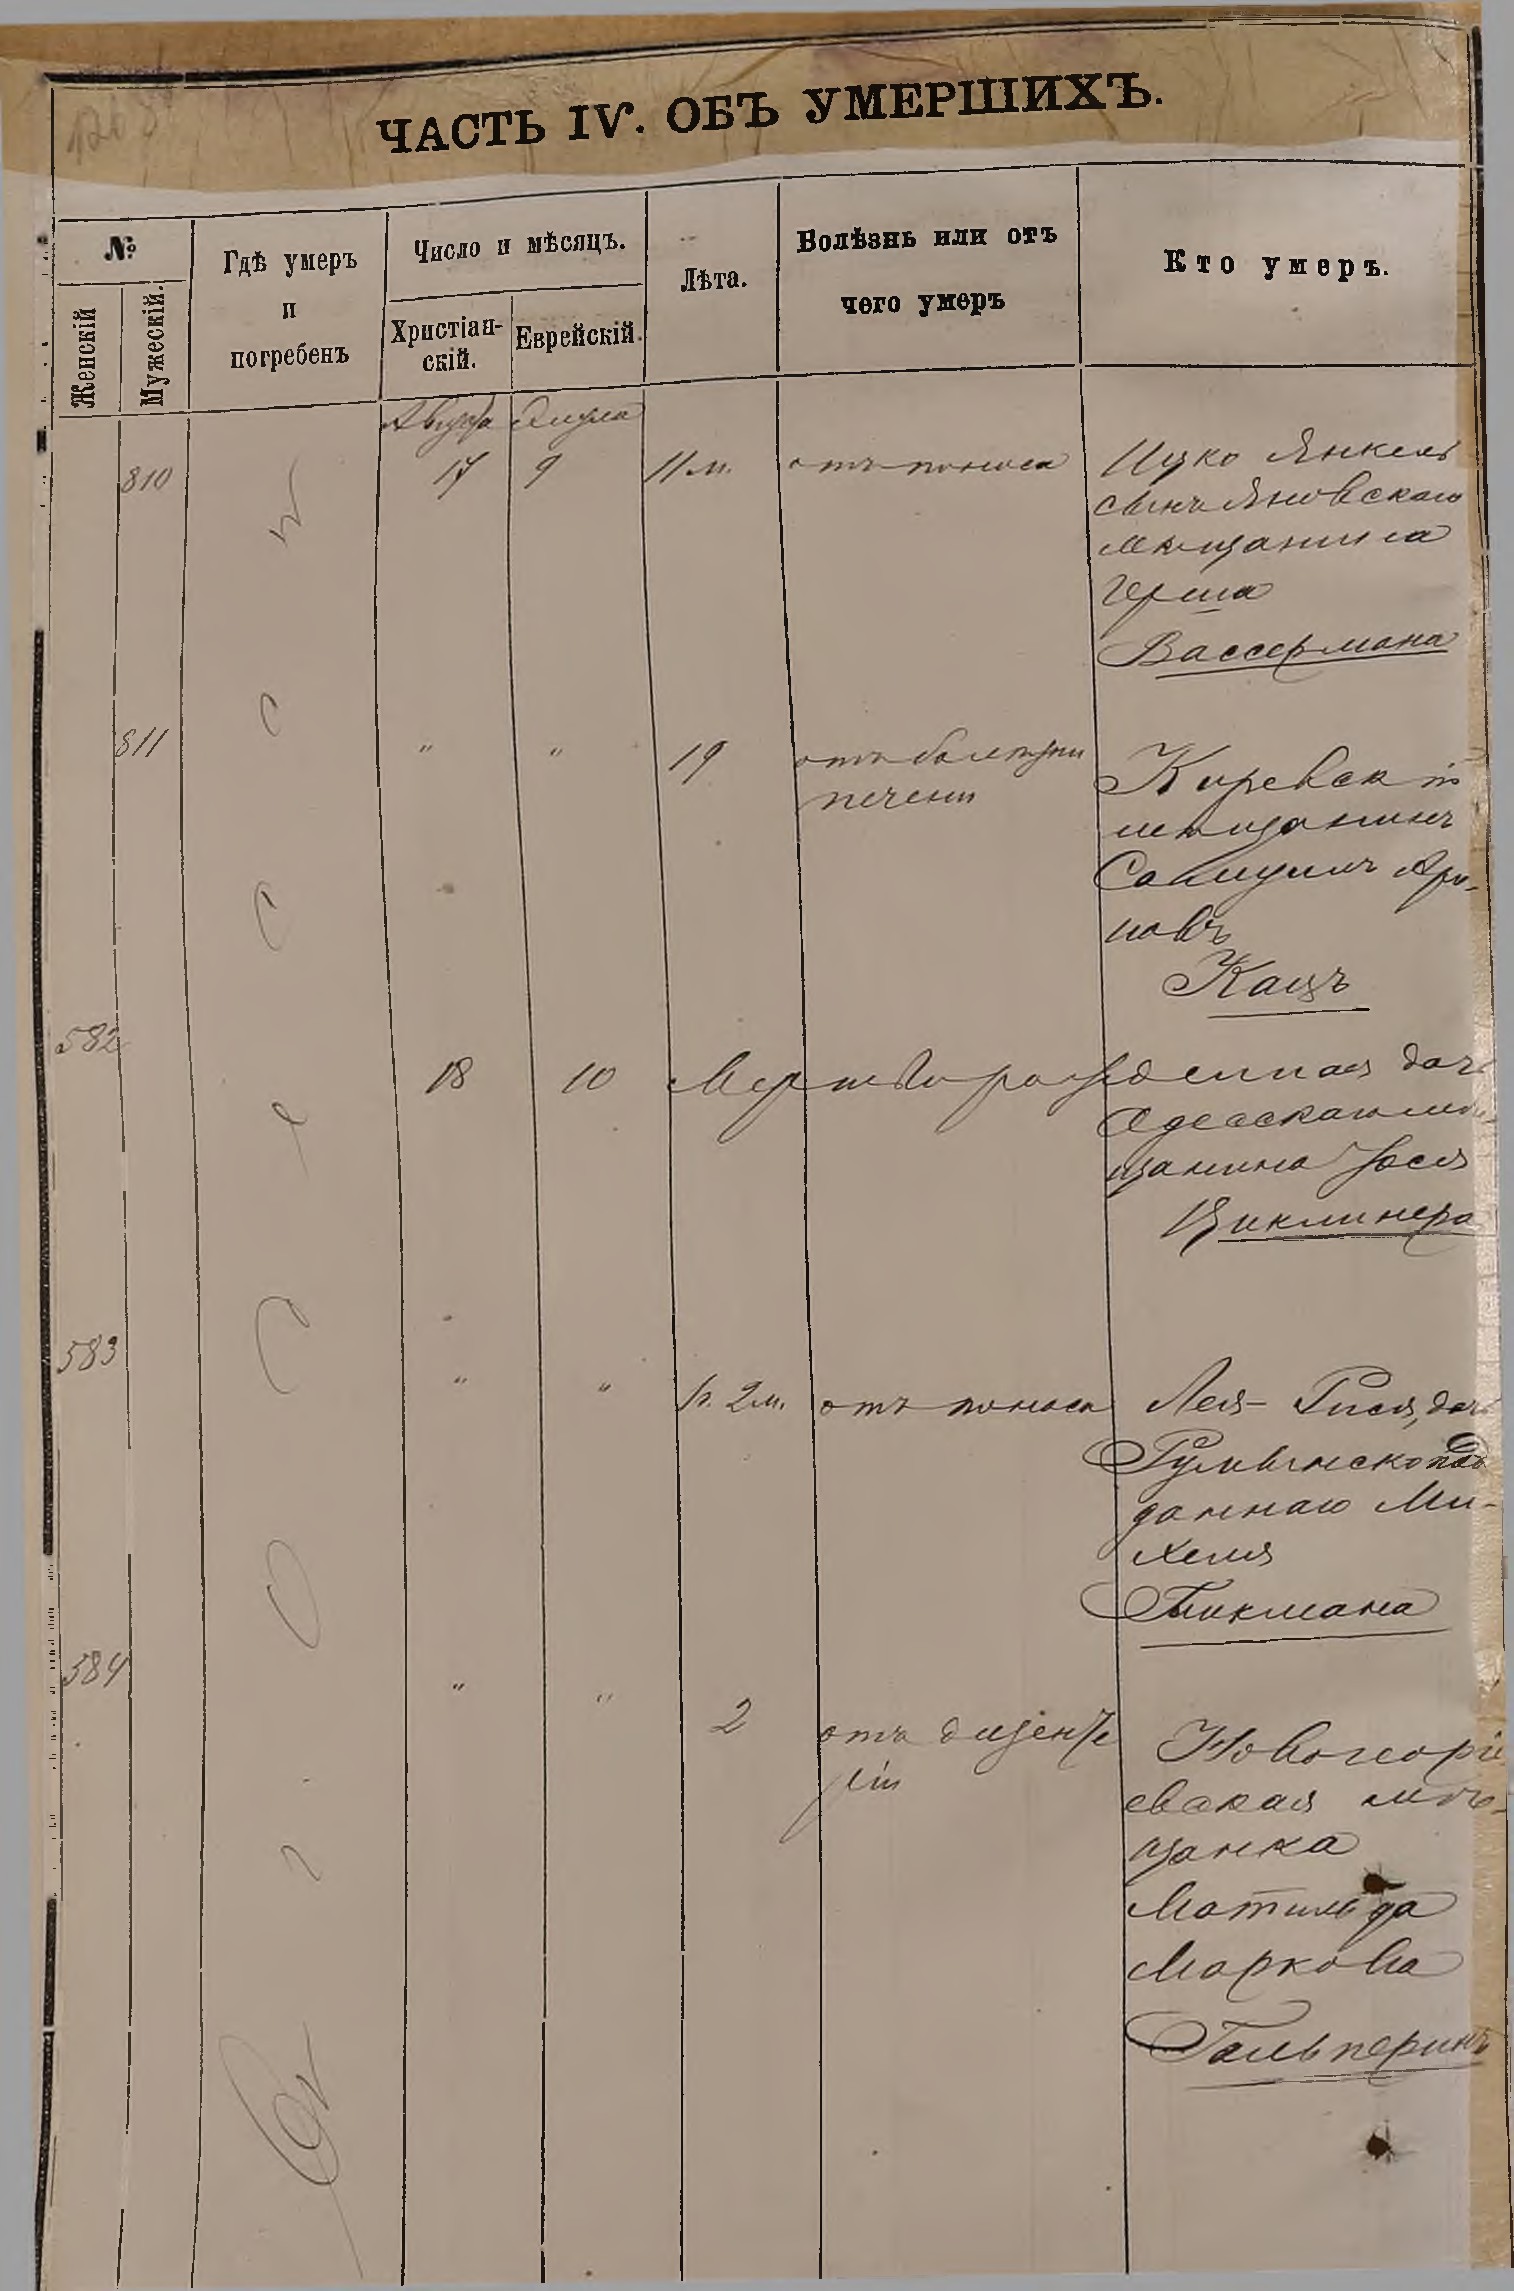 ЧАСТЬ IV. ОБЪ УМЕРШИХЪ.
№
Женскій
Мужескій.
Гдѣ умеръ
и
погребенъ
Число и мѣсяцъ.
Христіан-
скій.
Еврейскій.
Лѣта.
Болѣзнь или отъ
чего умеръ
Кто умеръ.
Августа Элула
810 17 9 11 м. отъ поноса Ицко Янкель
сынъ Яновскаго
мѣщанина
Герша
Вассермана
811 " " 19 отъ болѣзни
печени
Киревскій
мѣщанинъ
Самуилъ Аро-
новъ
Кацъ
582 18 10 Мертворожденная дочь
Одесскаго мѣ-
щанина Іося
Циклинера
583 " " 1 г. 2 м. отъ поноса Лея-Рися, дочь
Румынскопод
даннаго Ми-
хеля
Бикмана
584 " " 2 отъ дизенте
ріи
Новогеоргі
евская мѣ-
щанка
Матильда
Маркова
Гальперинъ
Одесса